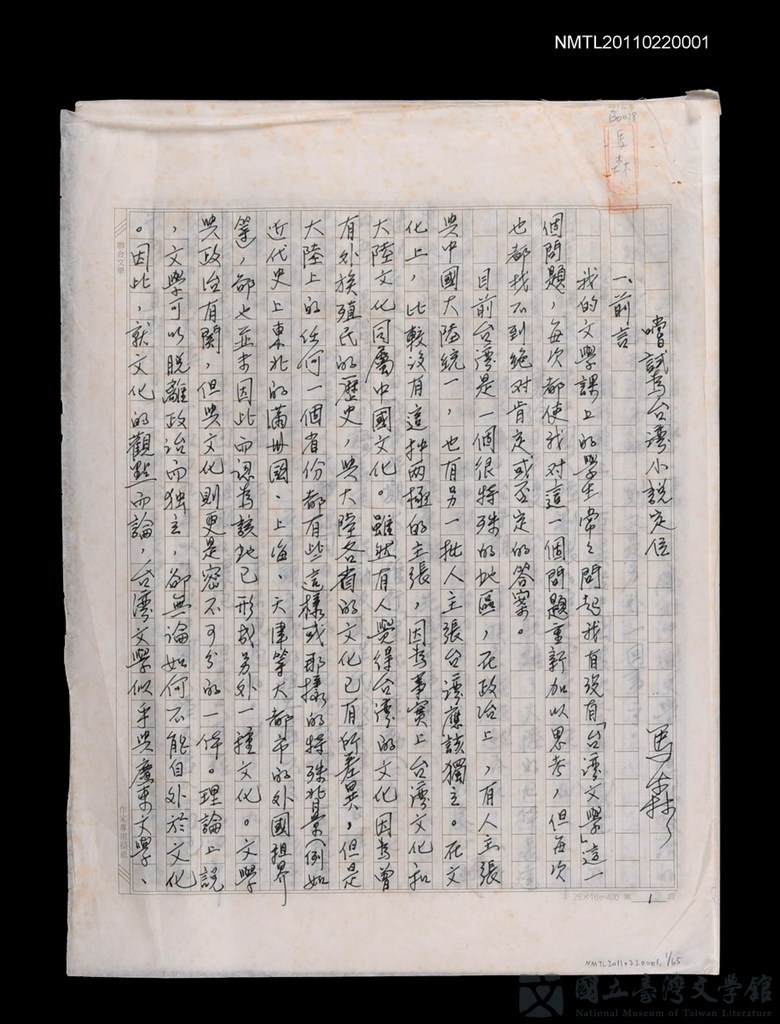 NMTL20110220001
B0018
馬森
嚐試為台灣小說定位
馬森
一、前言
我的文學課上的學生常々問起我有沒有「台灣文學」這一
個問題,每次都使我对這一個問題重新加以思考,但每次
也都找不到絕对肯定或否定的答案。
目前台灣是一個很特殊的地區,在政治上,有人主張
與中國大陸統一,也有另一批人主張台灣應該獨立。在文
化上,比較沒有這种兩極的主張,因為事實上台灣文化和
大陸文化同屬中國文化。雖然有人覺得台灣的文化因為曾
有外族殖民的歷史,與大陸各省的文化已有所差異,但是
大陸上的任何一個省份都有些這樣或那樣的特殊背景(例如
近代史上東北的滿州國、上海、天津等大都市的外國租界
等),卻也並未因此而認為該地已形成另外一種文化。文學
與政治有關,但與文化則更是密不可分的一体。理論上說
,文學可以脫離政治而独立,卻無論如何不能自外於文化
。因此,就文化的觀點而論,台灣文學似乎與廣東文學、
聯合文學
25×16=400
1
NMTL20110220001, 1/65
國立臺灣文學館
National Museum of Taiwan Literature